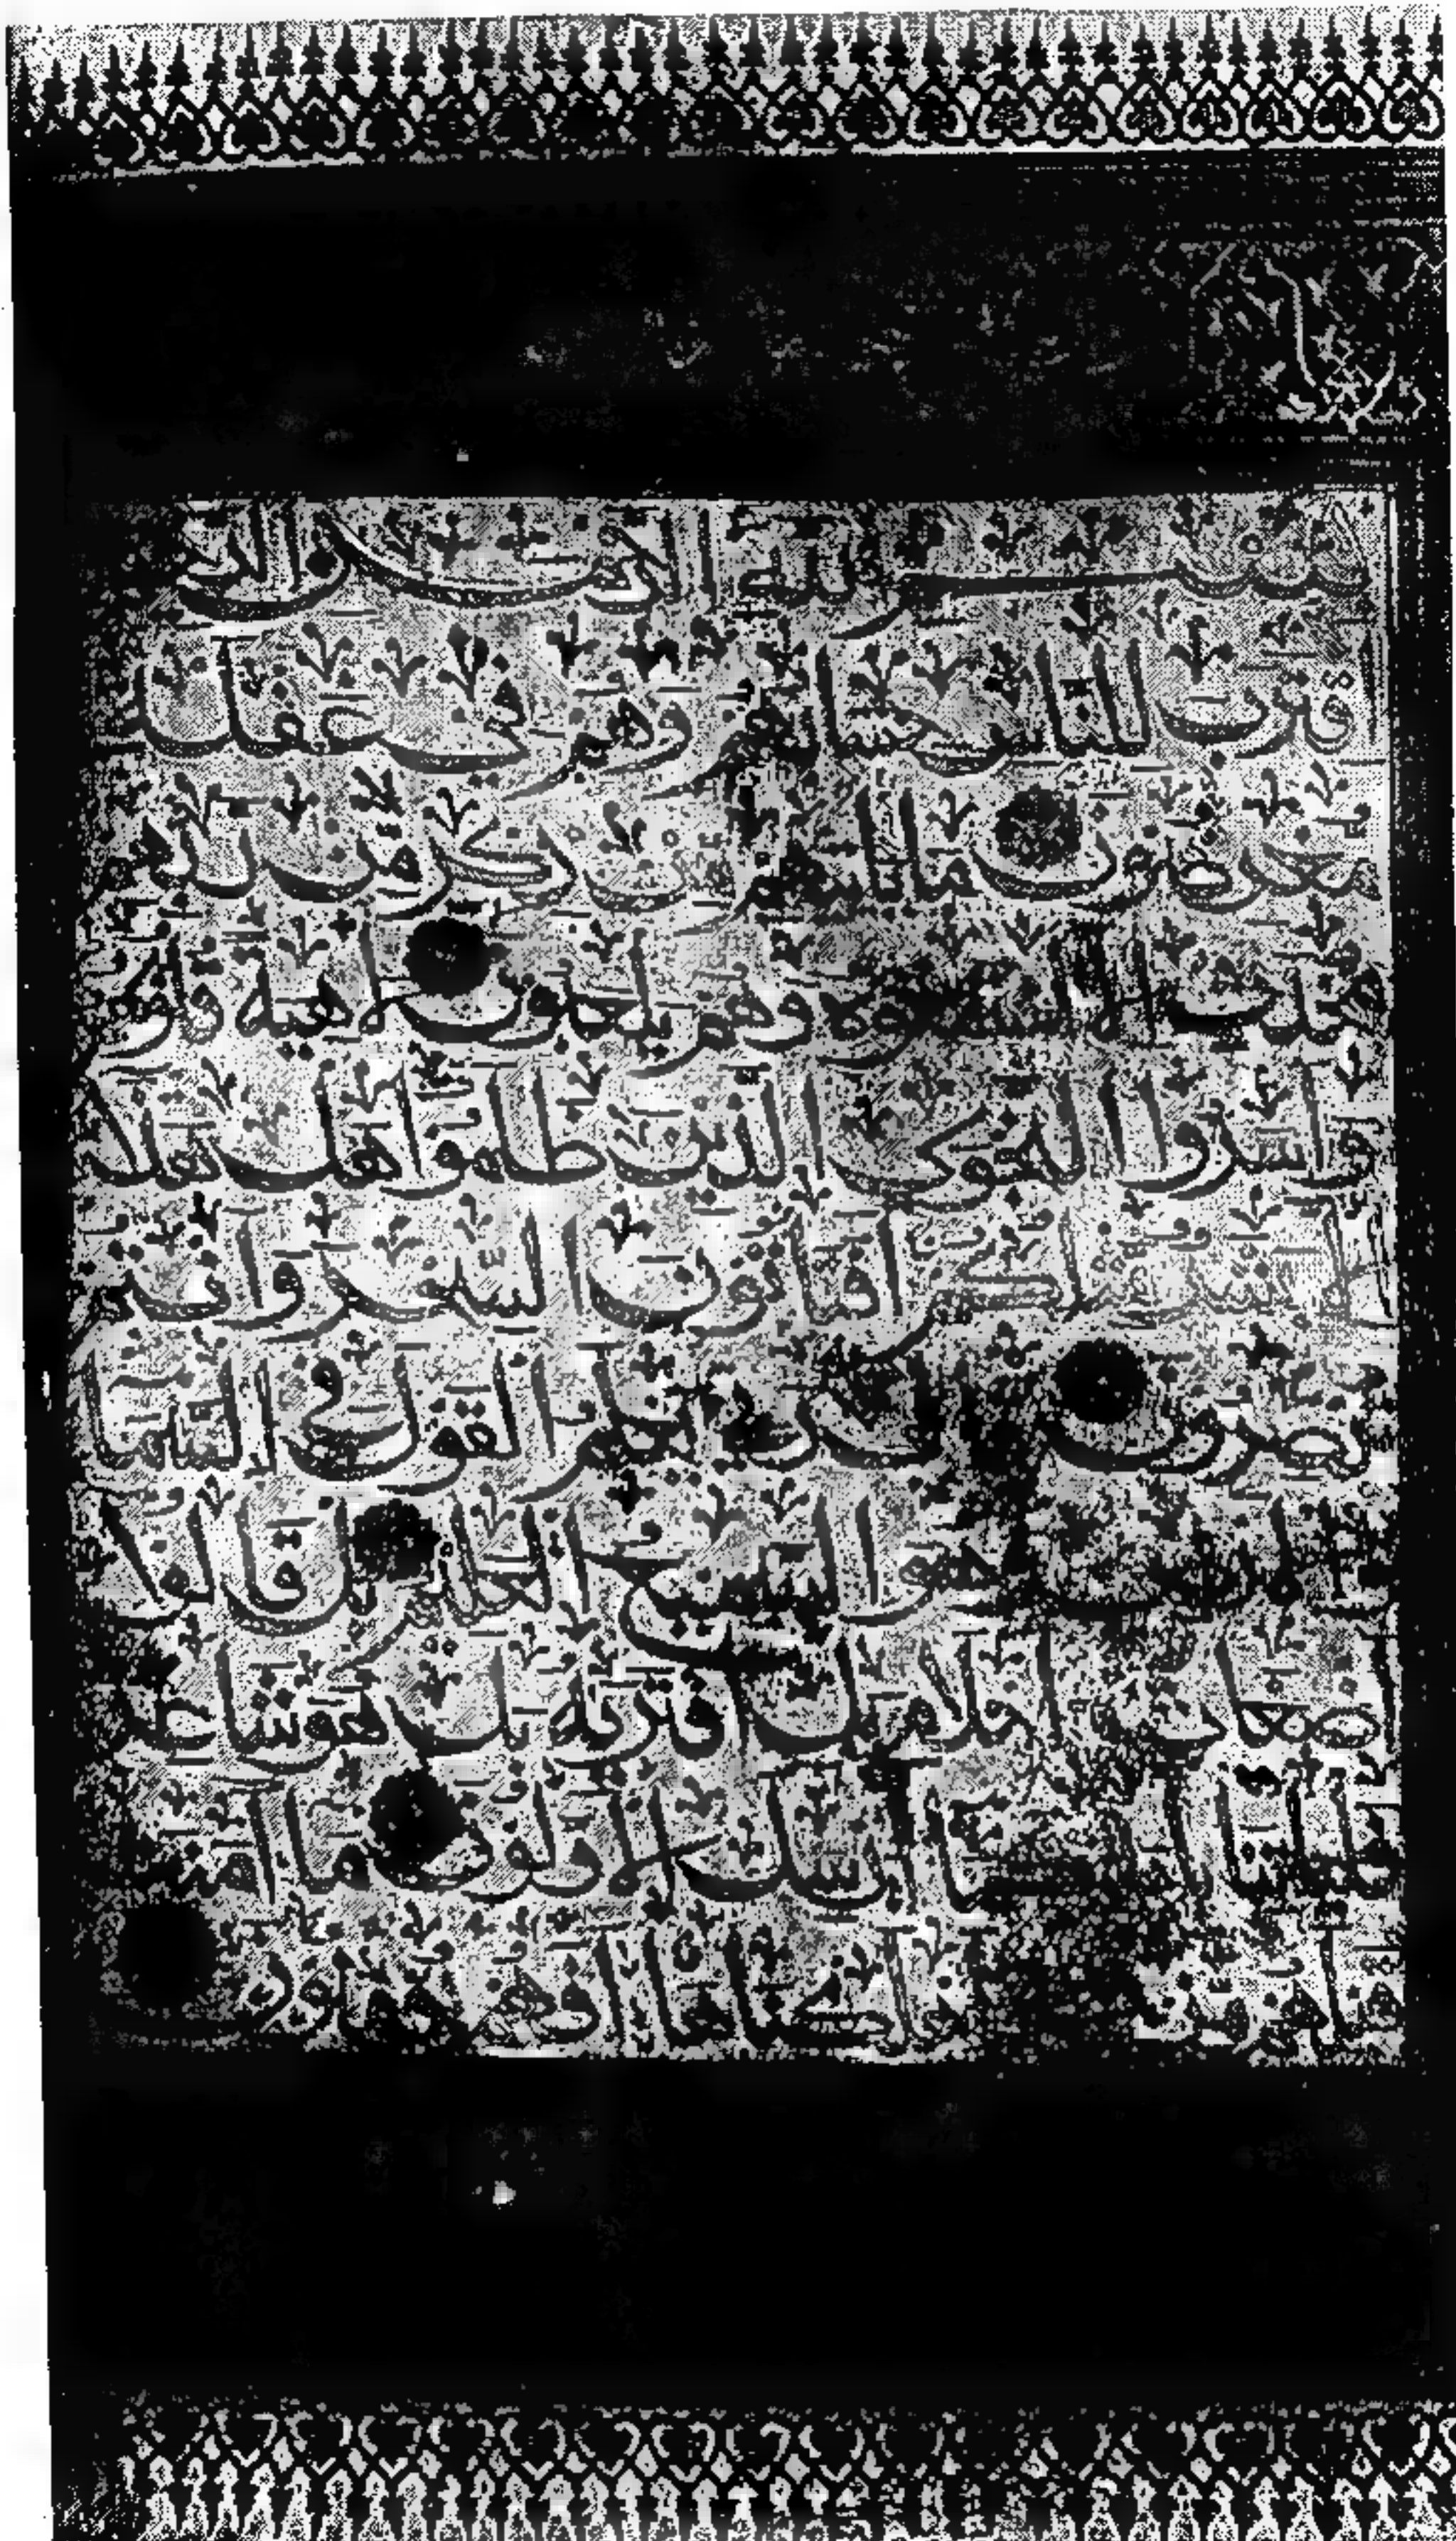 بسم الله الرحمن الرحيم
اقترب للناس حسابهم وهم في غفلة
معرضون ما ياتيهم من ذكر من ربهم
محدث الا استمعوه وهم يلعبون لاهية قلوبهم
واسروا النجوى الذين ظلموا هل هذا
الا بشر مثلكم افتاتون السحر وانتم
تبصرون قال ربي يعلم القول في السماء
والارض وهو السميع العليم بل قالوا
اضغاث احلام بل افتريه بل هو شاعر
فلياتنا باية كما ارسل الاولون ما امنت
قبلهم من قرية اهلكناها افهم يؤمنون